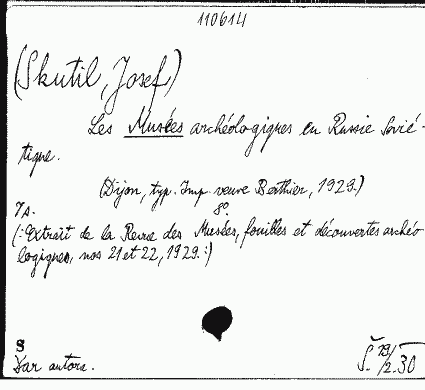 110614
(Skutil, Josef)
Les Musées archéologiques en Russie Sovié-
tique.
(Dijon, typ. Imp. veuve Berthier, 1929.)
7 s. 8°.
(: Extrait de la Revue des Musées, fouilles et découvertes archéo
logiques, nos 21 et 22, 1929. :)
S
Dar autora.